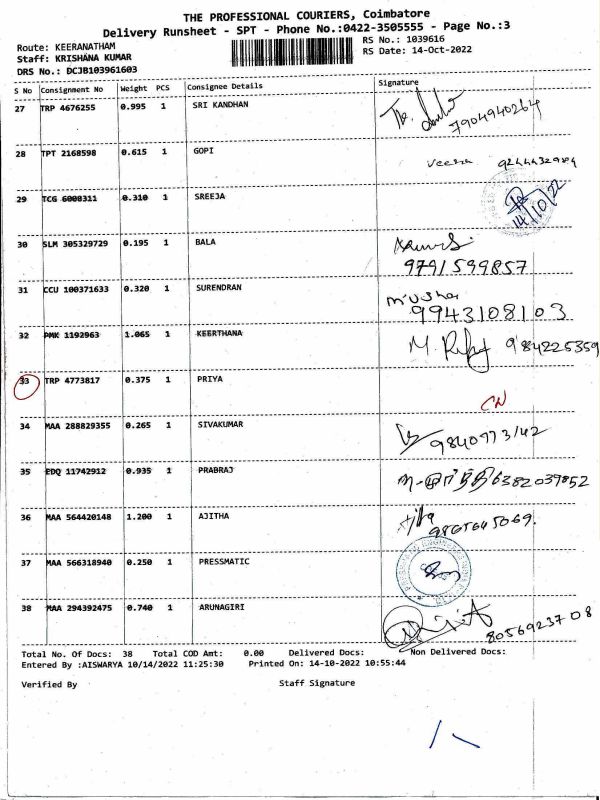 THE PROFESSIONAL COURIERS, Coimbatore
Delivery Runsheet - SPT - Phone No.:0422-3505555 - Page No.:3
Route: KEERANATHAM
RS No.: 1039616
Staff: KRISHANA KUMAR
RS Date: 14-Oct-2022
DRS No.: DCJB103961603
S No Consignment No Weight PCS Consignee Details Signature
27 TRP 4676255 0.995 1 SRI KANDHAN
7904940264
28 TPT 2168598 0.615 1 GOPI
Veena 9244432984
29 TCG 6000311 0.310 1 SREEJA
14/10/22
30 SLM 305329729 0.195 1 BALA
9791599857
31 CCU 100371633 0.320 1 SURENDRAN
9943108103
32 PMK 1192963 1.065 1 KEERTHANA
M. 984225359
33 TRP 4773817 0.375 1 PRIYA
CN
34 MAA 288829355 0.265 1 SIVAKUMAR
9840773142
35 EDQ 11742912 0.935 1 PRABRAJ
6382039852
36 MAA 564420148 1.200 1 AJITHA
37 MAA 566318940 0.250 1 PRESSMATIC
38 MAA 294392475 0.740 1 ARUNAGIRI
8056923708
Total No. Of Docs: 38 Total COD Amt: 0.00 Delivered Docs: Non Delivered Docs:
Entered By :AISWARYA 10/14/2022 11:25:30 Printed On: 14-10-2022 10:55:44
Verified By Staff Signature